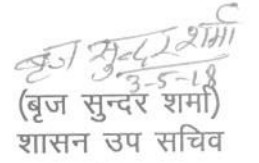 बृज सुन्दर शर्मा
3-5-18
(बृज सुन्दर शर्मा)
शासन उप सचिव